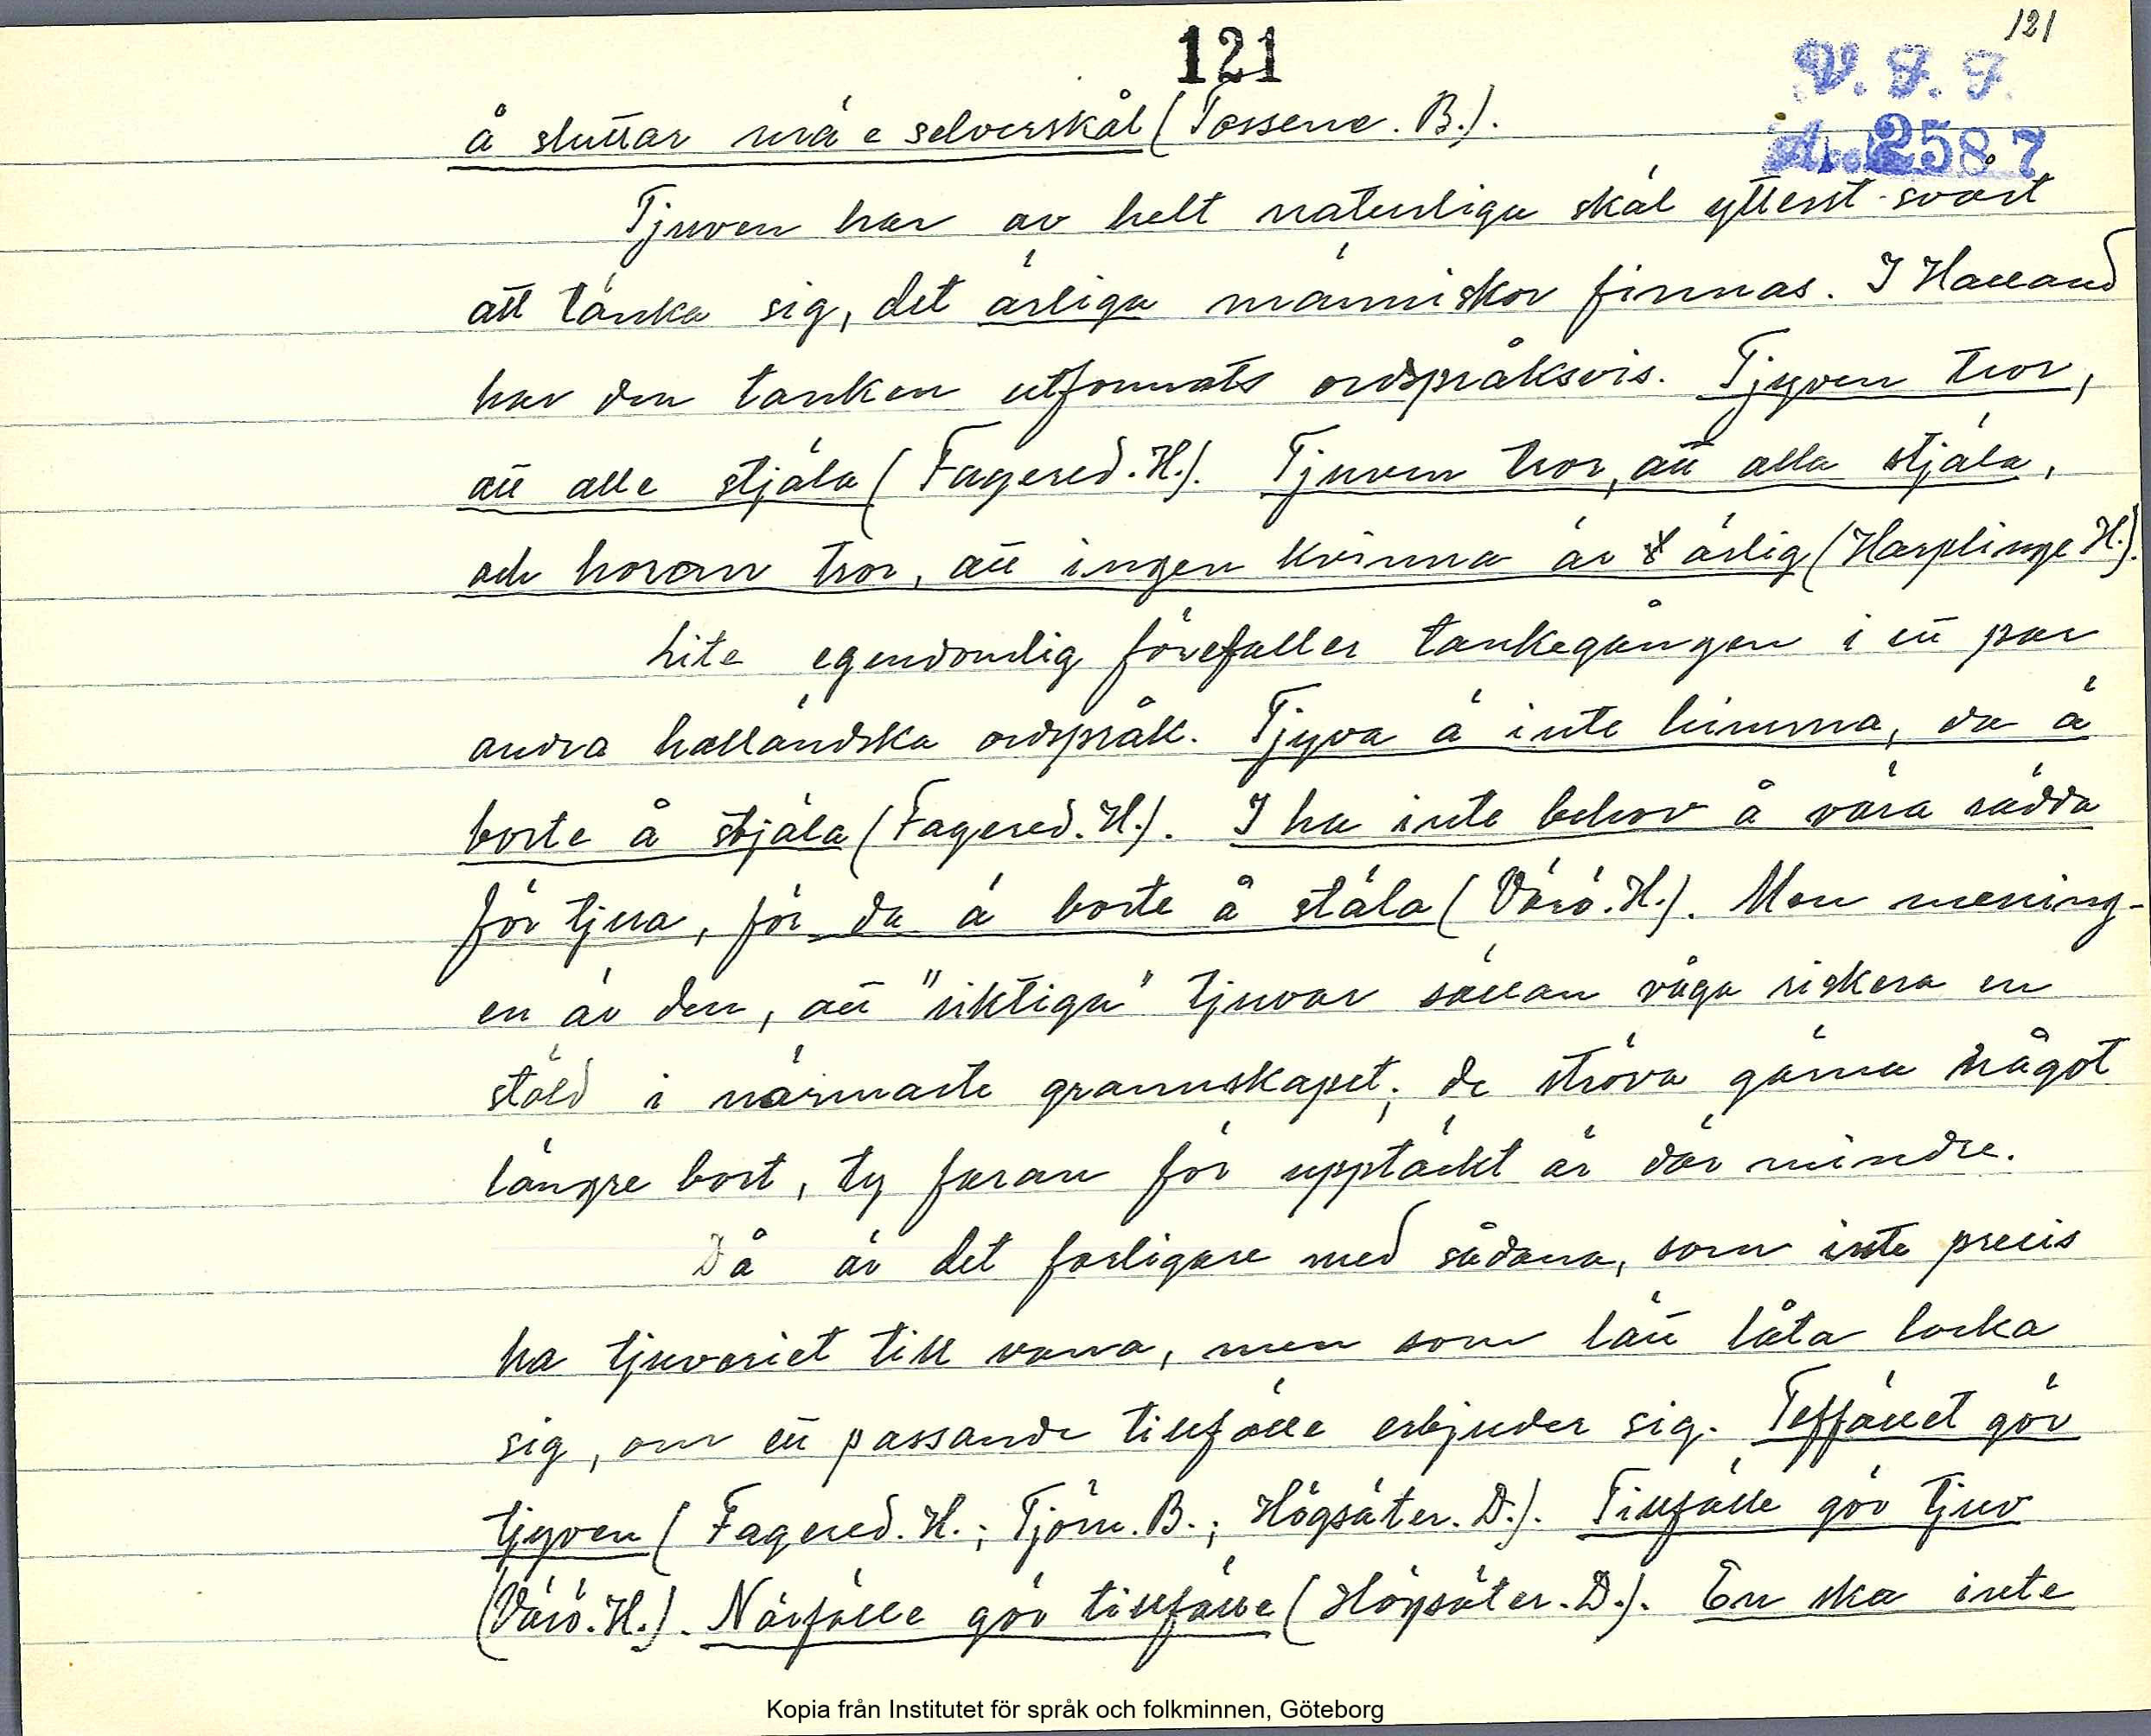 121
121
V. F. F.
Acc. 2587
å sluttar mä e selverskål (Tossene. B.).
Tjuven har av helt naturliga skäl ytterst svårt
att tänka sig, det ärliga människor finnas. I Halland
har den tanken utformats ordspråksvis. Tjyven tror,
att alle stjäla (Fagered. H.). Tjuven tror, att alla stjäla,
och horan tror, att ingen kvinna är ärlig (Harplinge H.).
Lite egendomlig förefaller tankegången i ett par
andra halländska ordspråk. Tjyva ä inte himma, da ä
borte å stjäla (Fagered. H.). I ha inte behov å vara rädda
för tjua, för da ä borte å stäla (Värö. H.). Men mening-
en är den, att "riktiga" tjuvar sällan våga riskera en
stöld i närmaste grannskapet; de ströva gärna något
längre bort, ty faran för upptäckt är där mindre.
Då är det farligare med sådana, som inte precis
ha tjuveriet till vana, men som lätt låta locka
sig, om ett passande tillfälle erbjuder sig. Teffället gör
tjyven (Fagered. H.; Tjörn. B.; Högsäter. D.). Tillfälle gör tjuv
(Värö. H.). Närfälle gör tillfälle (Högsäter. D.). En ska inte
Kopia från Institutet för språk och folkminnen, Göteborg